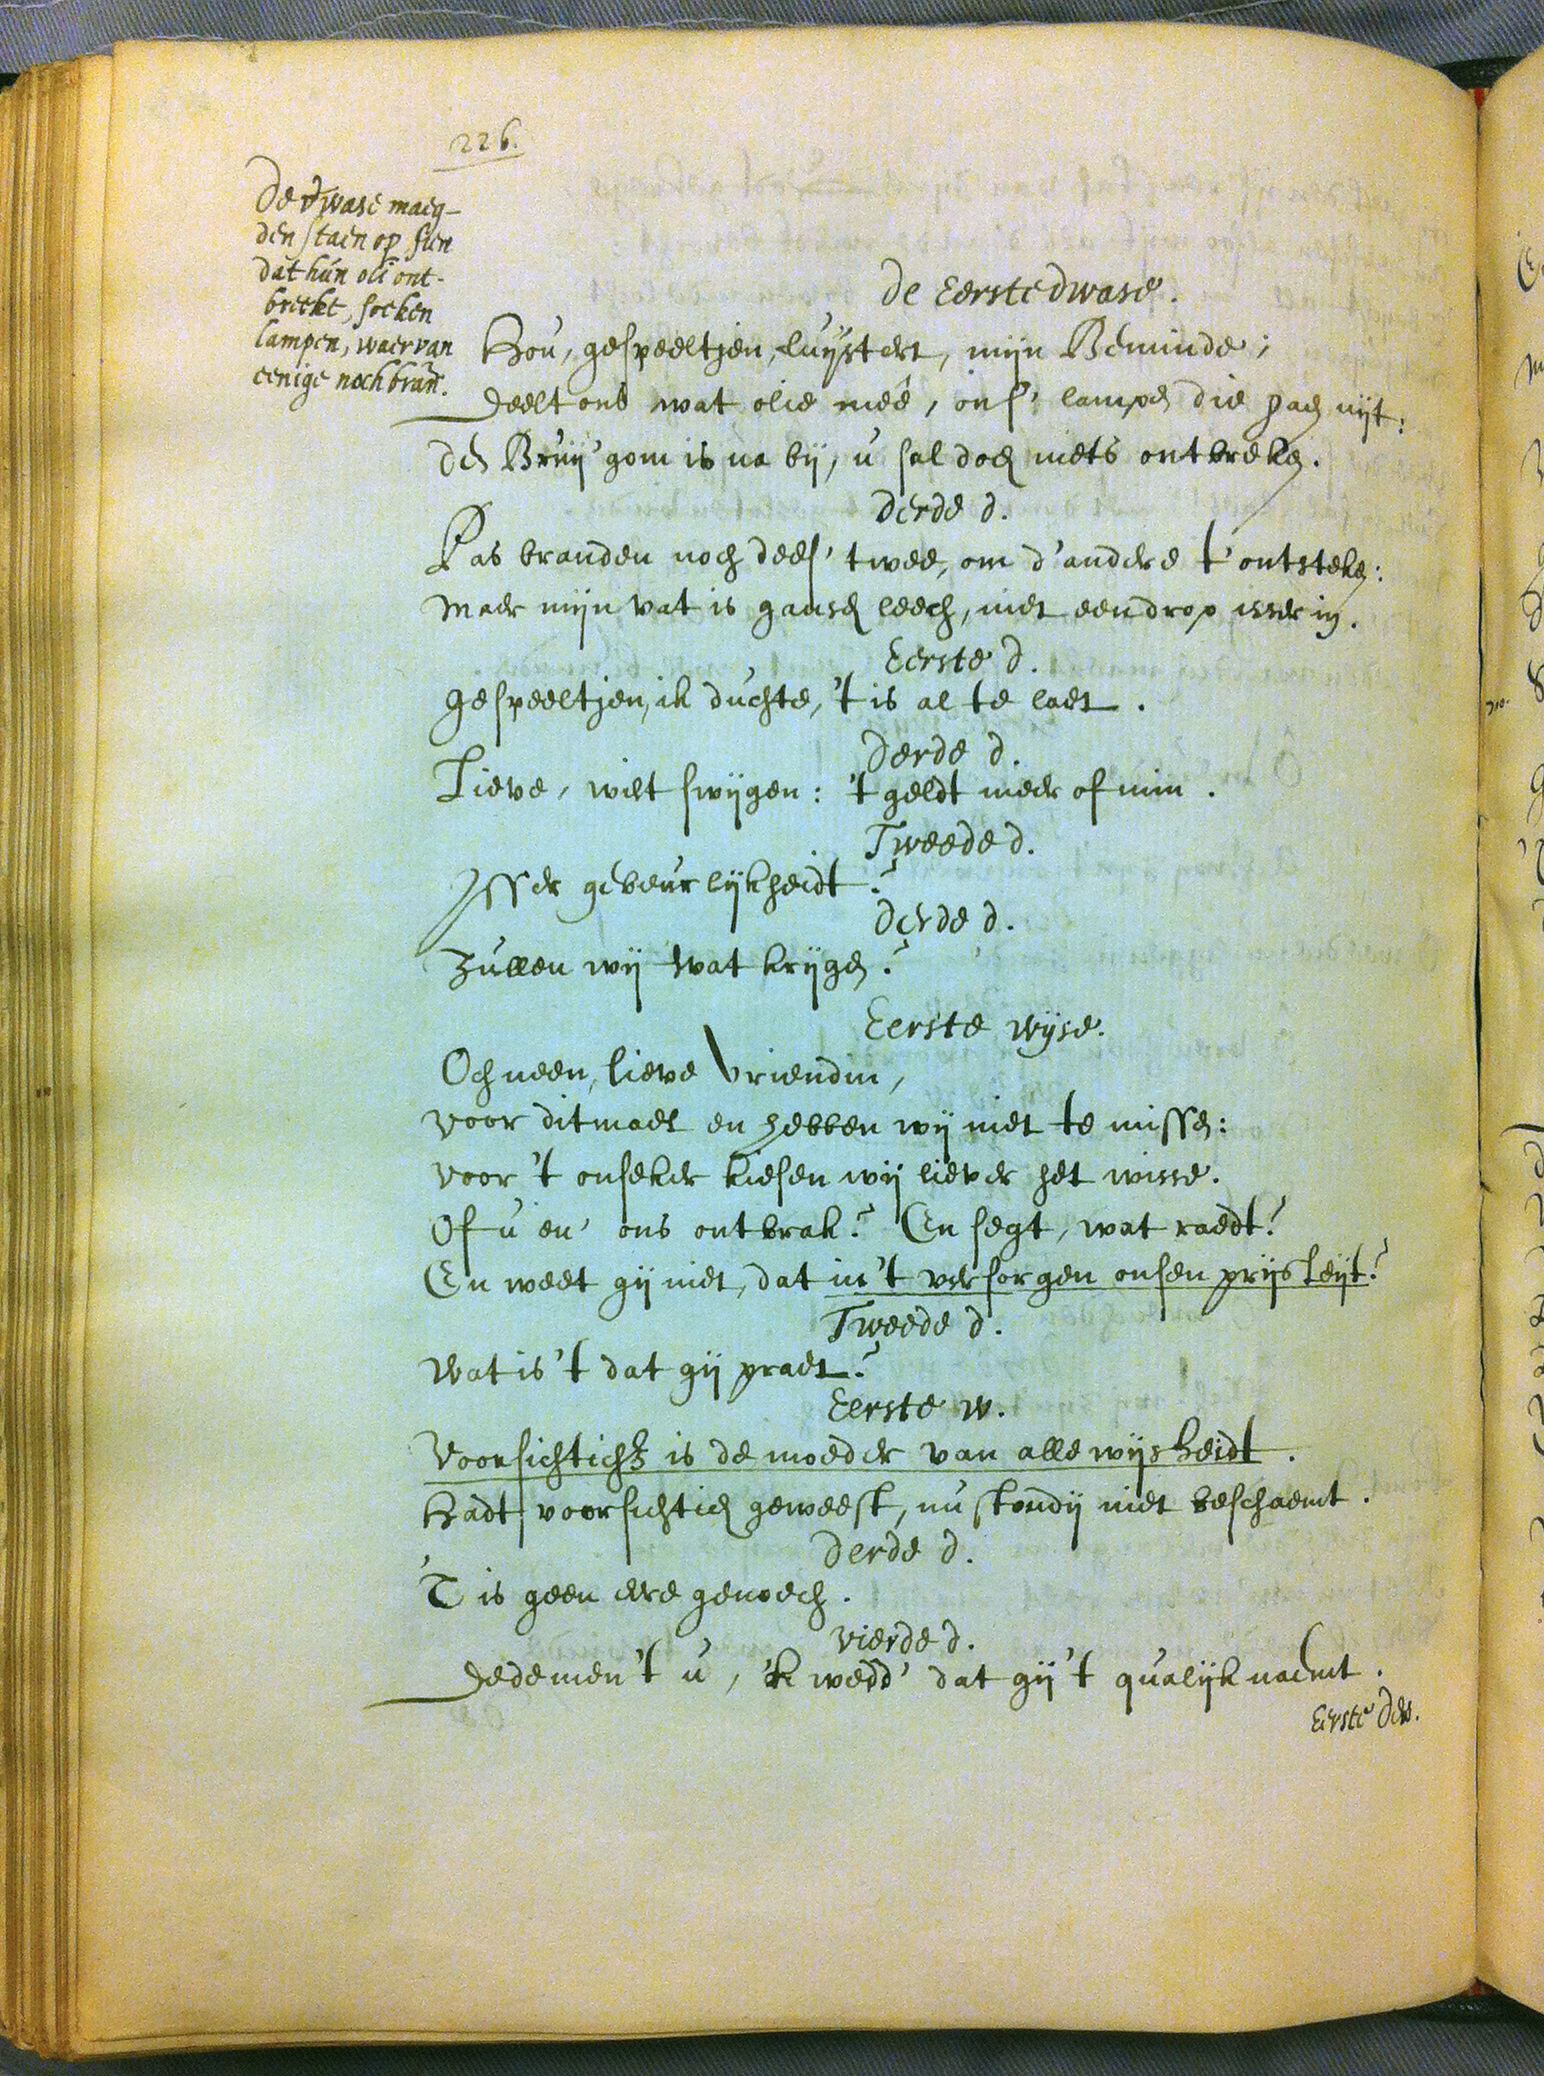 226.
De dwase maeg-
den staen op sien
dat hún oli ont-
breekt, soeken
lampen, waer van
eenige noch bran.
De Eerste dwase.
Hou, gespeeltjen, luÿstert, mijn Beminde;
Deelt ons wat olie meê, ons' lampen die gaen uijt:
Den Bruij'gom is na bij, u sal doch niets ontbreken.
Derde d.
Pas branden noch dees' twee, om d'andere t'ontsteken:
Maer mijn vat is gansch leech, niet een drop isser in.
Eerste d.
Gespeeltjen, ik duchte, 't is al te laet.
Derde d.
Lieve, wilt swijgen: 't geldt meer of min.
Tweede d.
Isser gebeurlijkheidt?
Derde d.
Zullen wij wat krijgen?
Eerste wijse.
Och neen, lieve Vriendin,
voor ditmael en hebben wij niet te missen:
voor 't onseker kiesen wij liever het wisse.
Of u en' ons ontbrak? En segt, wat raedt?
En weet gij niet, dat in 't versorgen onsen prijs leijt?
Tweede d.
Wat is 't dat gij praet?
Eerste w.
Voorsichtich is de moeder van alle wijsheidt.
Hadt voorsichtich geweest, nu stondij niet beschaemt.
Derde d.
'T is geen eere genoech.
Vierde d.
Dedemen 't u, 'k wedd' dat gij 't qualijk naemt.
Eerste